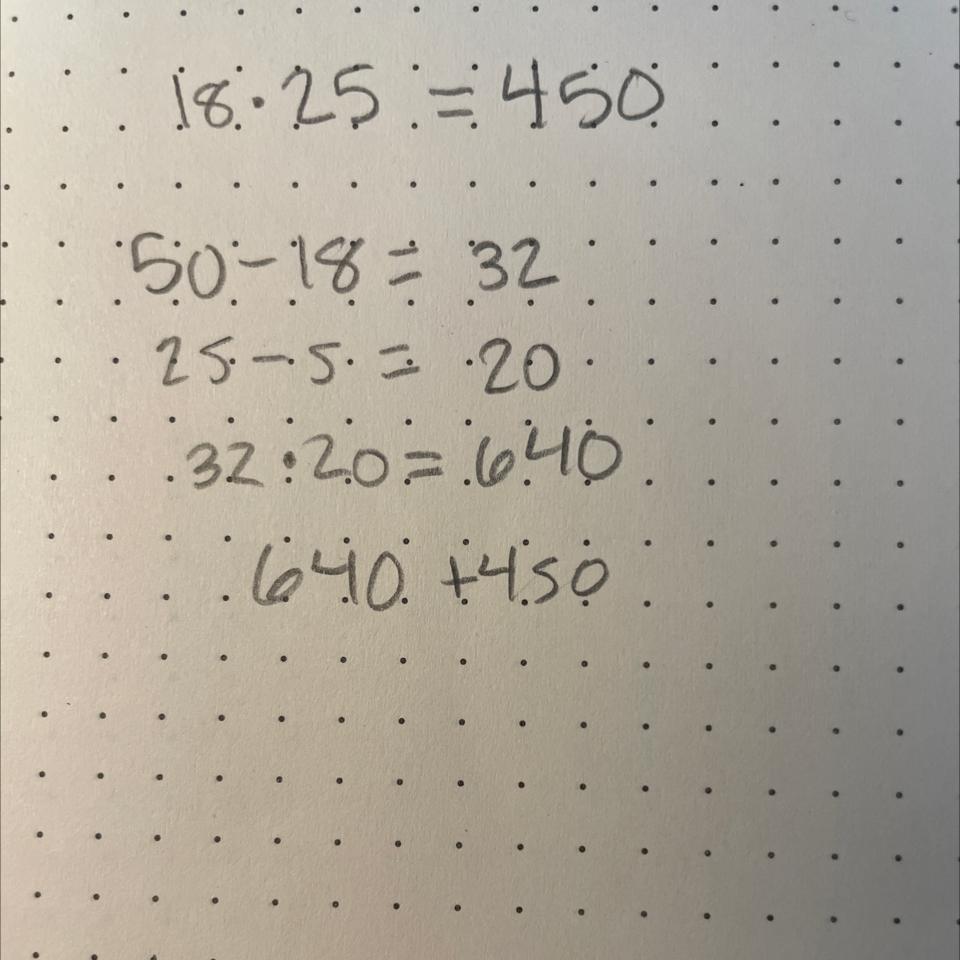 18·25 = 450
50-18 = 32
25-5 = 20
32·20 = 640
640 +450